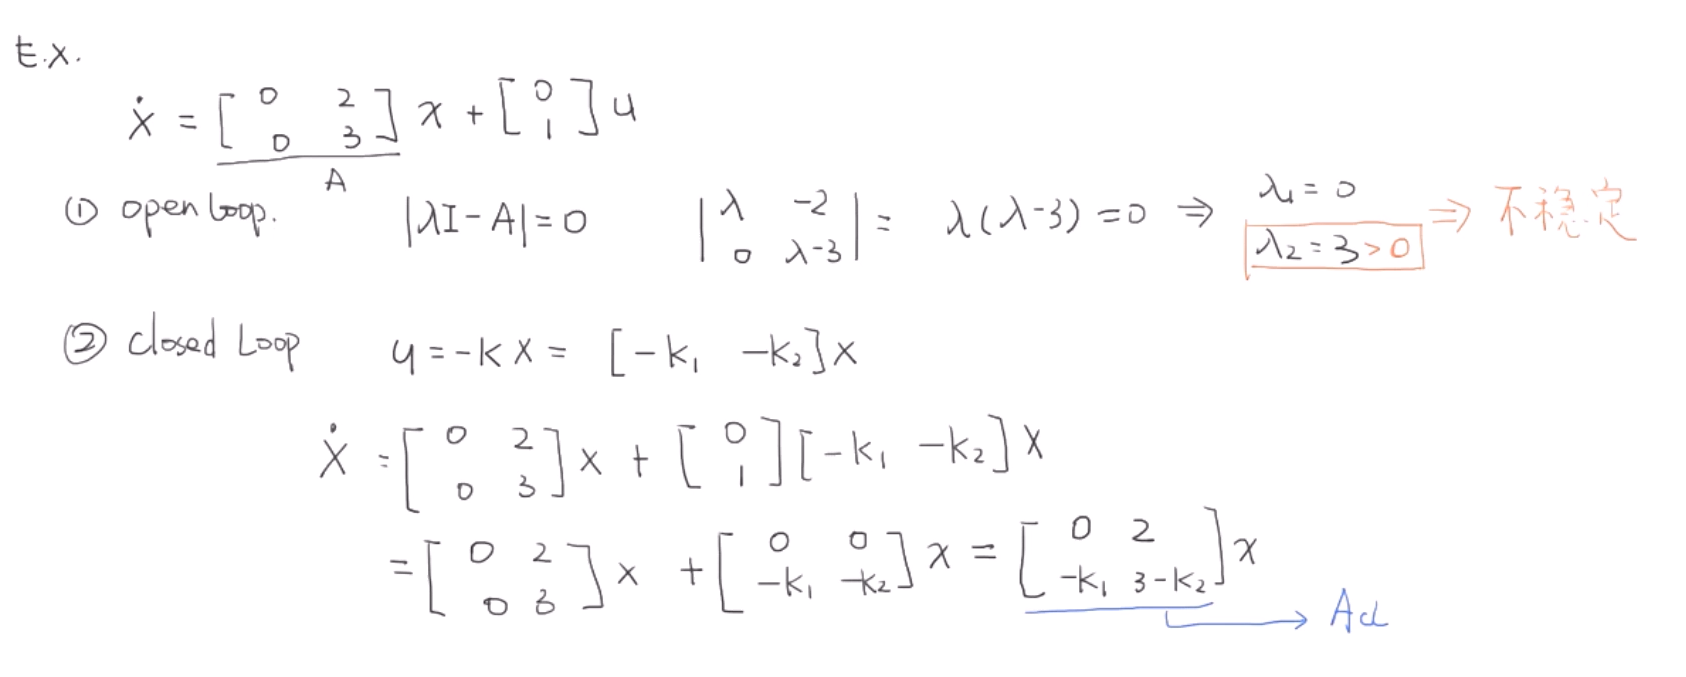 E.X.
ẋ = [0 2; 0 3] x + [0; 1] u
A
① open loop. |λI - A| = 0 |λ -2; 0 λ-3| = λ(λ-3) = 0 ⇒ λ₁ = 0 λ₂ = 3 > 0 ⇒ 不稳定
② closed Loop u = -k x = [-k₁ -k₂] x
ẋ = [0 2; 0 3] x + [0; 1] [-k₁ -k₂] x
= [0 2; 0 3] x + [0 0; -k₁ -k₂] x = [0 2; -k₁ 3-k₂] x
→ Acl